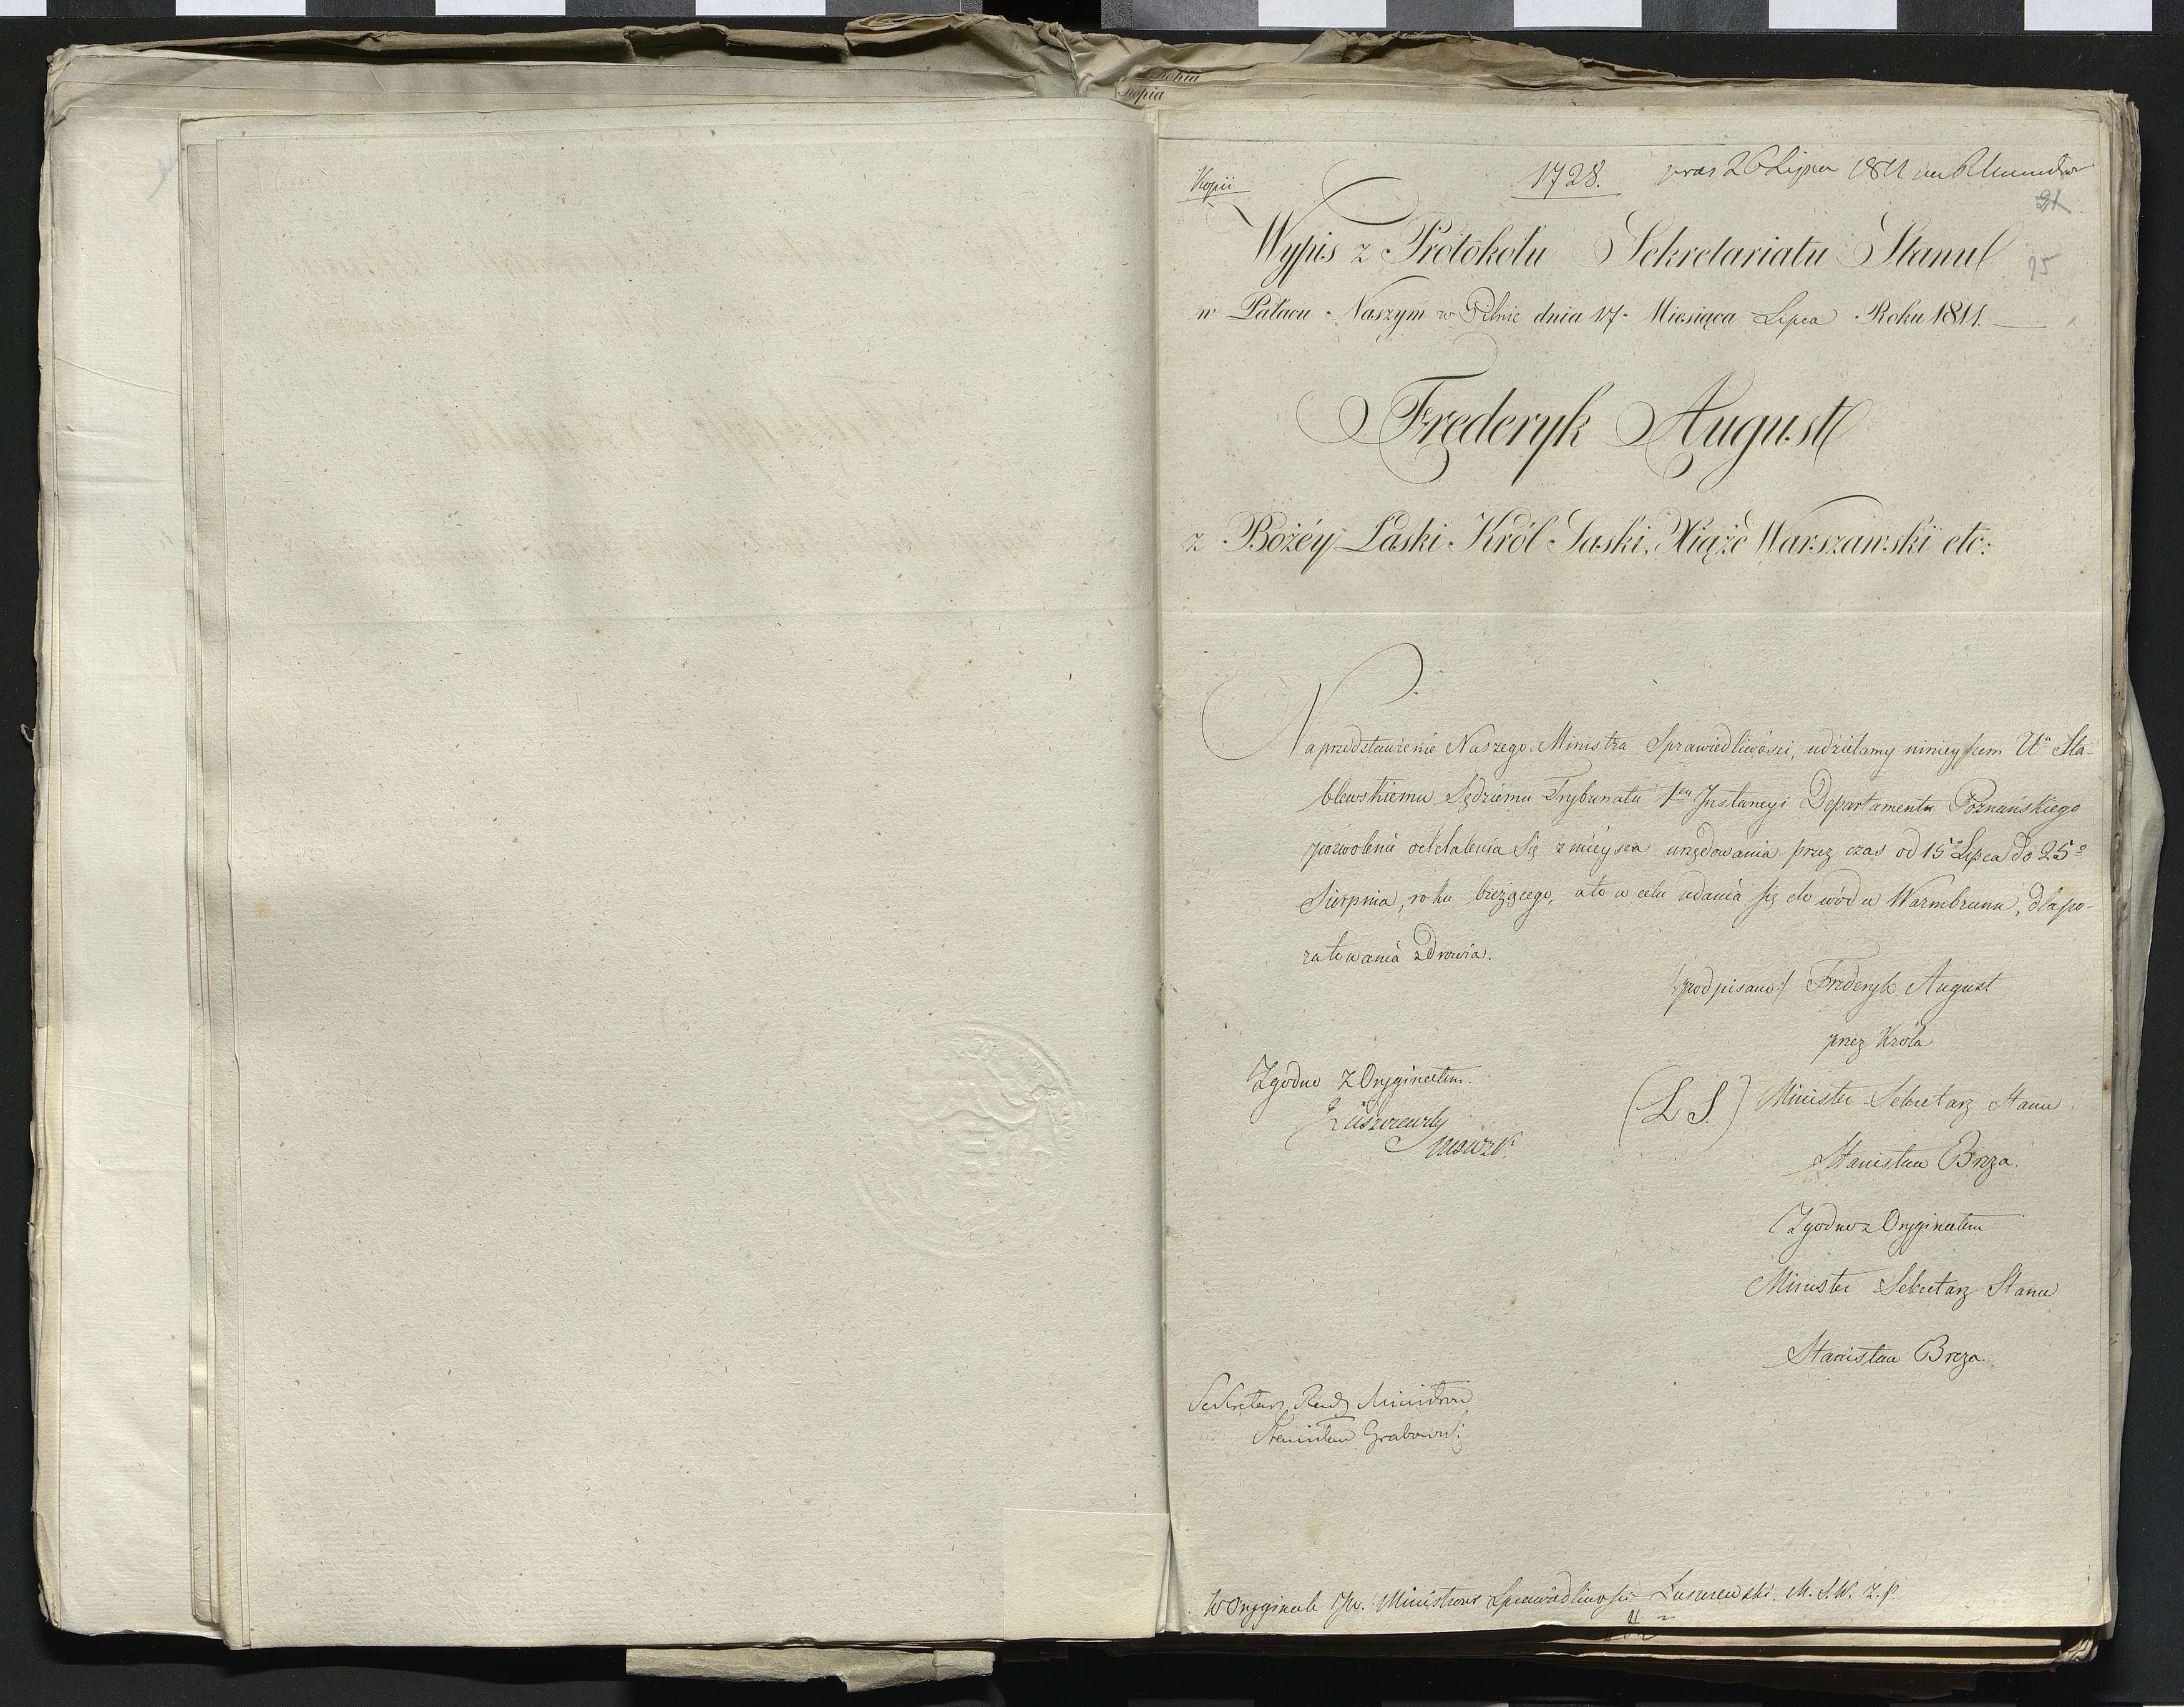 Kopia
Kopia
Kopii
1728.
26 Lipca 1811
21
15
Wypis z Protokołu Sekretariatu Stanu
w Pałacu Naszym w Pilnic dnia 17. Miesiąca Lipca Roku 1811.
Frederyk August
z Bożéy Łaski Król Saski, Xiąże Warszawski etc:
Na przedstawienie Naszego Ministra Sprawiedliwości, udzielamy ninieyszem Ur Sta-
blewskiemu Sędziemu Trybunału 1ey Instancyi Departamentu Poznańskiego
pozwolenie oddalenia się z mieysca urzędowania przez czas od 15º Lipca do 25º
Sierpnia, roku bieżącego, a to w celu udania się do wód w Warmbrunn, dla po-
ratowania zdrowia.
/:podpisano:/ Frederyk August
przez Króla
(L S.) Minister Sekretarz Stanu
Stanisław Breza.
Zgodno z Oryginałem.
Łuszczewsky
MSWZP.
Zgodno z Oryginałem
Minister Sekretarz Stanu
Stanisław Breza.
Sekretarz Rady Ministrów
Stanisław Grabowski
W Oryginale JW. Ministrowi Sprawiedliwości Łuszczewski. M. S. W. Z. P.